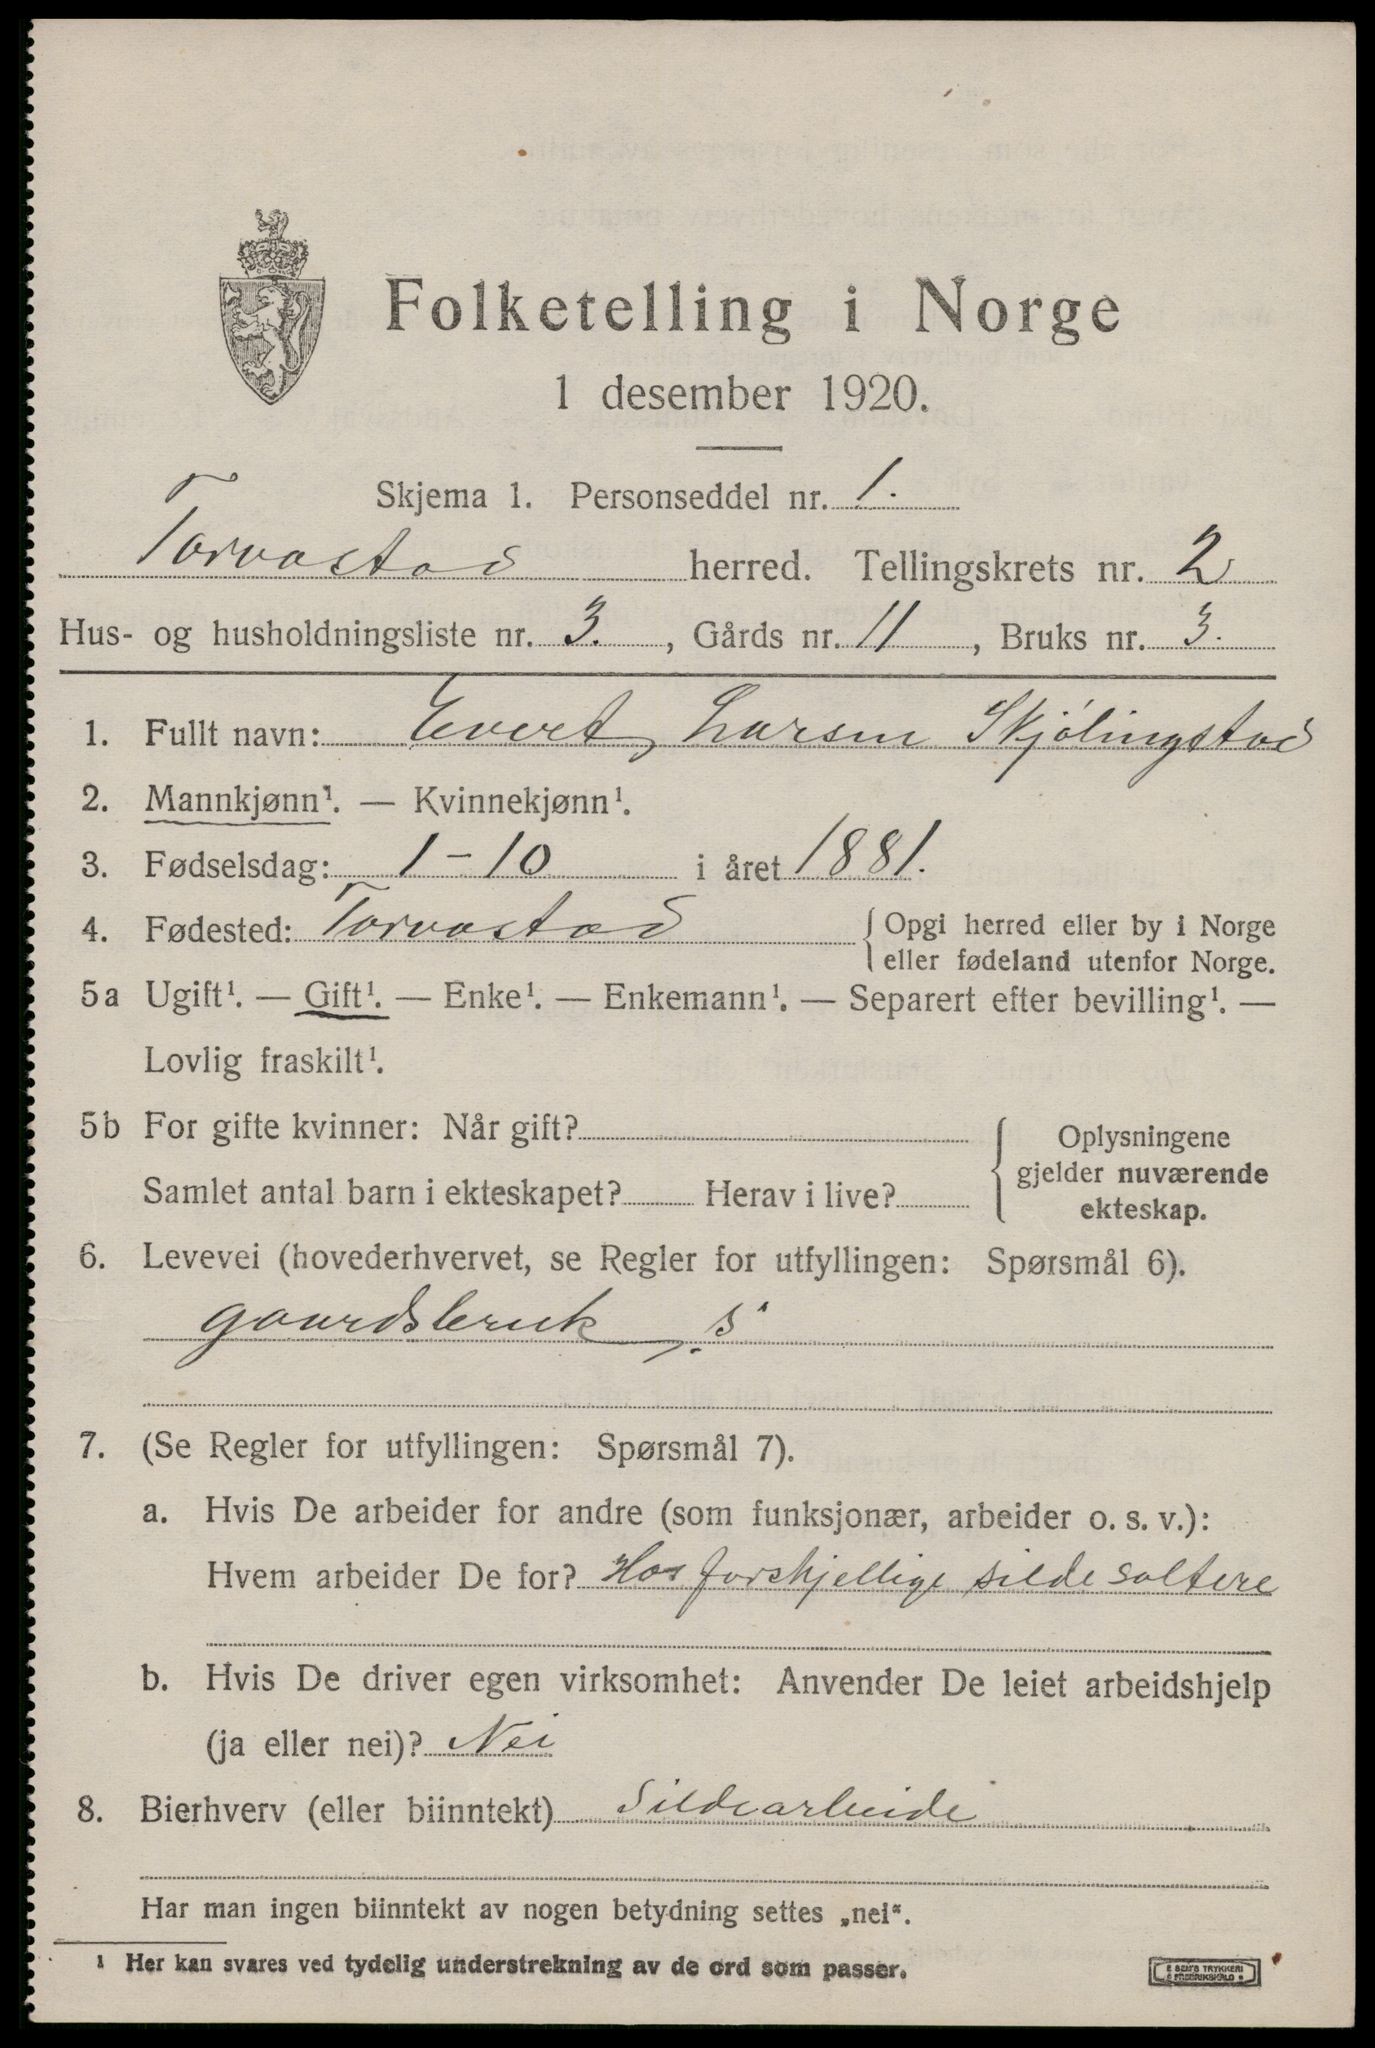 Folketelling i Norge
1 desember 1920.
Skjema 1. Personseddel nr. 1.
Torvastad herred. Tellingskrets nr. 2
Hus- og husholdningsliste nr. 3. , Gårds nr. 11 , Bruks nr. 3.
1. Fullt navn: Evert Larsen Skjölingstad
2. Mannkjønn¹. — Kvinnekjønn¹.
3. Fødselsdag: 1-10 i året 1881.
4. Fødested: Torvastad { Opgi herred eller by i Norge
eller fødeland utenfor Norge.
5a Ugift¹. — Gift¹. — Enke¹. — Enkemann¹. — Separert efter bevilling¹. —
Lovlig fraskilt¹.
5b For gifte kvinner: Når gift?
Samlet antal barn i ekteskapet? Herav i live?
{ Oplysningene
gjelder nuværende
ekteskap.
6. Levevei (hovederhvervet, se Regler for utfyllingen: Spørsmål 6).
gaardsbruk, s
7. (Se Regler for utfyllingen: Spørsmål 7).
a. Hvis De arbeider for andre (som funksjonær, arbeider o. s. v.):
Hvem arbeider De for? Hos forskjellige silde saltere
b. Hvis De driver egen virksomhet: Anvender De leiet arbeidshjelp
(ja eller nei)? Nei
8. Bierhverv (eller biinntekt) Sildearbeide
Har man ingen biinntekt av nogen betydning settes „nei“.
¹ Her kan svares ved tydelig understrekning av de ord som passer.